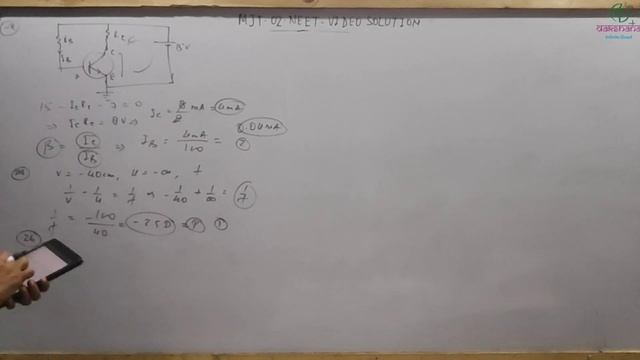 MJT-02 NEET-VIDEO SOLUTION
dakshana
R_B
R_C
I_B
C
E
15 V
15 - I_C R_C - 7 = 0
⇒ I_C R_C = 8V ⇒ I_C = 8/2 mA = 4mA
β = I_C/I_B ⇒ I_B = 4mA/100 = 0.04mA
v = -40cm, u = -∞, f
1/v - 1/u = 1/f ⇒ -1/40 + 1/∞ = 1/f
1/f = -100/40 = -2.5D = P
26